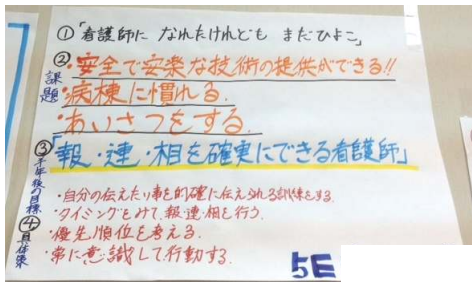 ①「看護師に なれたけれども まだひよこ」
②課題
・安全で安楽な技術の提供ができる!!
・病棟に慣れる。
・あいさつをする。
③半年後の目標
「報・連・相を確実にできる看護師」
④具体策
・自分の伝えたい事を的確に伝えられる訓練をする。
・タイミングをみて、報・連・相を行う。
・優先順位を考える。
・常に意識して行動する。
5E